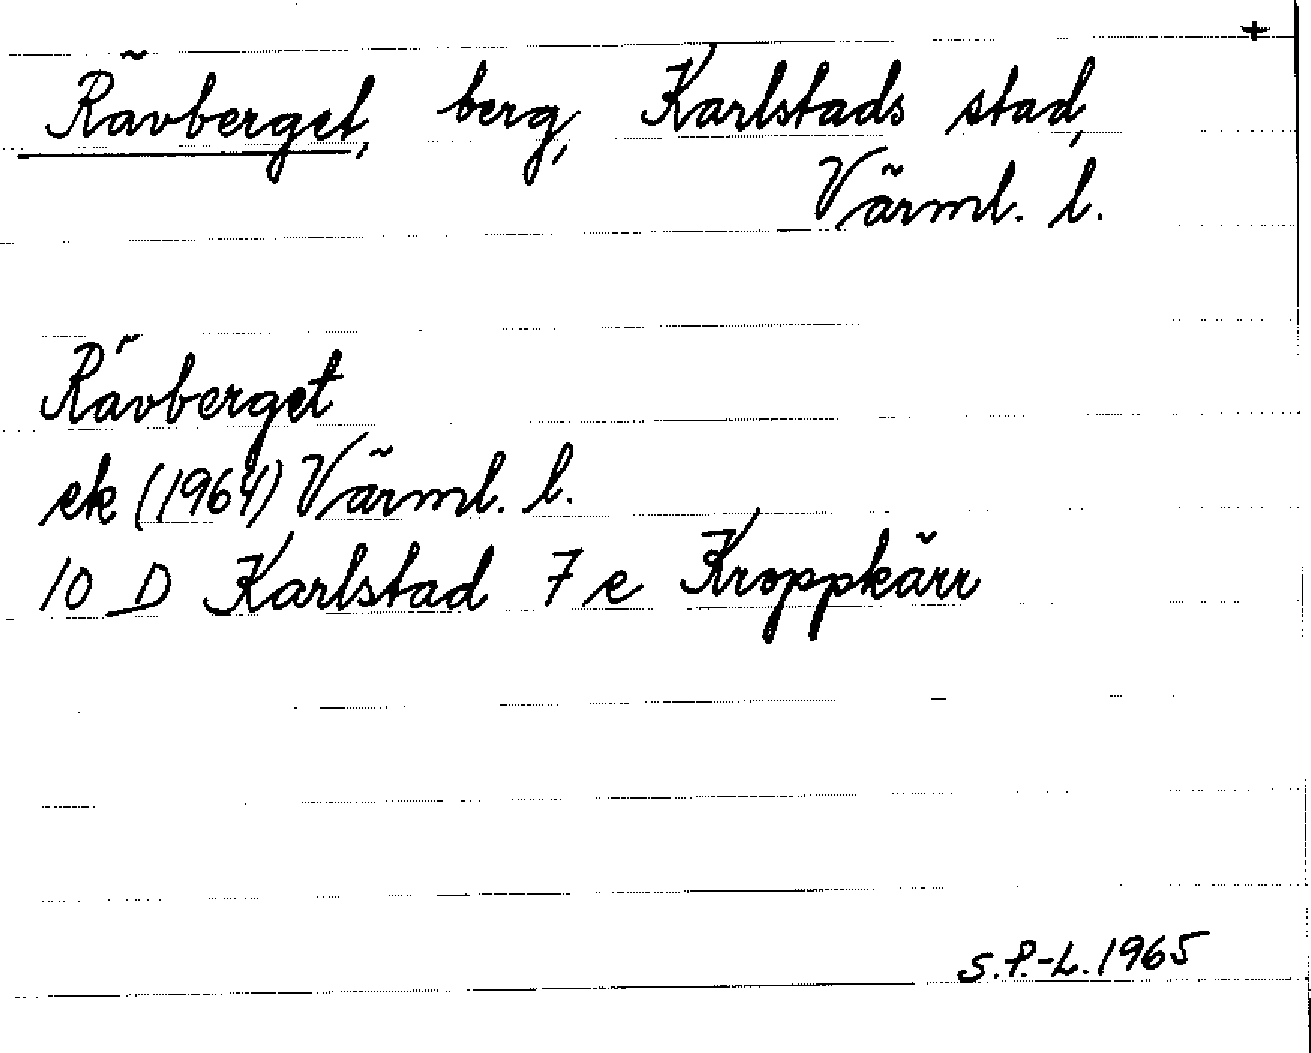 +
Rävberget, berg, Karlstads stad,
Värml. l.
Rävberget
ek (1964) Värml. l.
10 D Karlstad 7 e Kroppkärr
S.P.-L. 1965